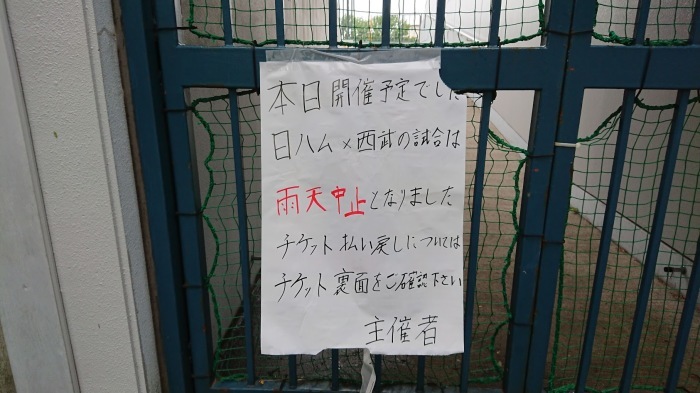 本日開催予定でした
日ハム×西武の試合は
雨天中止となりました
チケット払い戻しについては
チケット裏面をご確認下さい
主催者